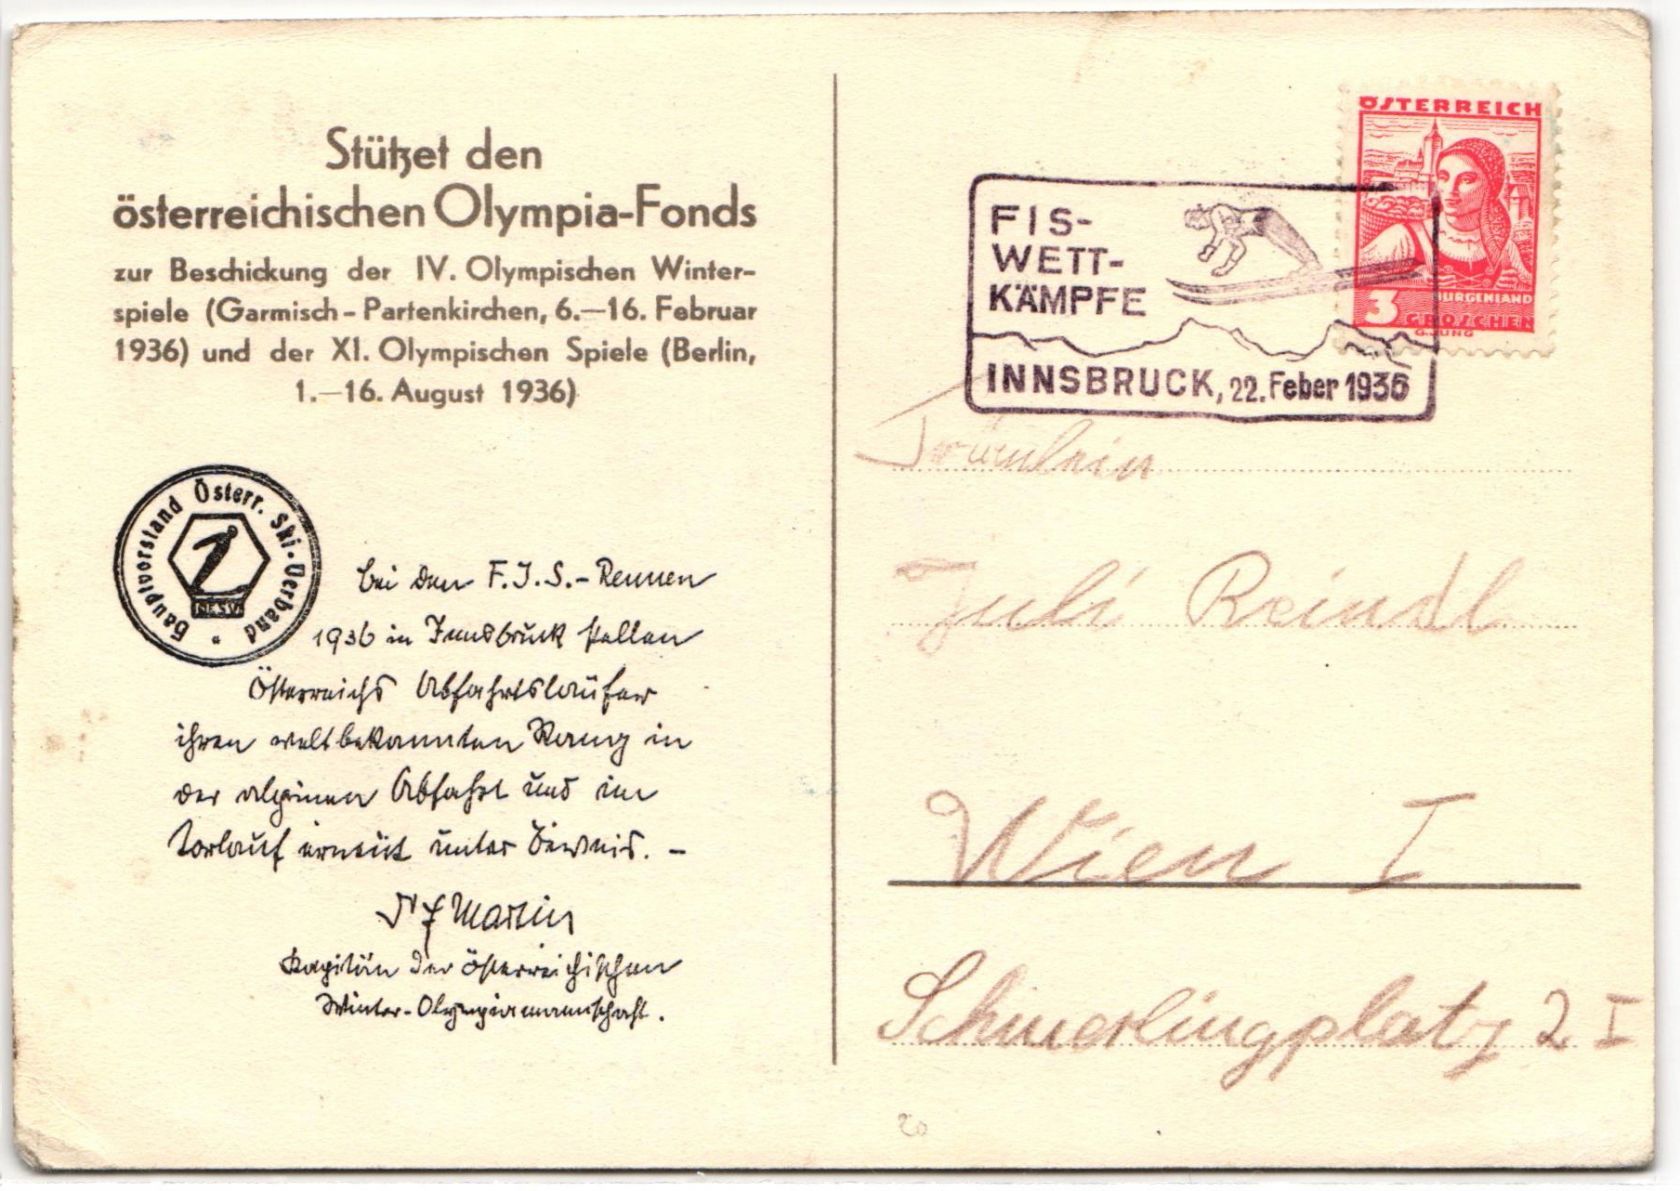 Stützet den
österreichischen Olympia-Fonds
zur Beschickung der IV. Olympischen Winter-
spiele (Garmisch-Partenkirchen, 6.—16. Februar
1936) und der XI. Olympischen Spiele (Berlin,
1.—16. August 1936)
Hauptvorstand Österr. Ski-Verband
bei den F.I.S.-Rennen
1936 in Innsbruck stellen
Österreichs Abfahrtsläufer
ihren weltbekannten Rang in
der alpinen Abfahrt und im
Torlauf erneut unter Beweis. —
Martin
Kapitän der österreichischen
Winter-Olympiamannschaft.
ÖSTERREICH
BURGENLAND
3 GROSCHEN
G. JUNG
FIS-
WETT-
KÄMPFE
INNSBRUCK, 22. Feber 1936
Fräulein
Juli Reindl
Wien I
Schmerlingplatz 2 I
20